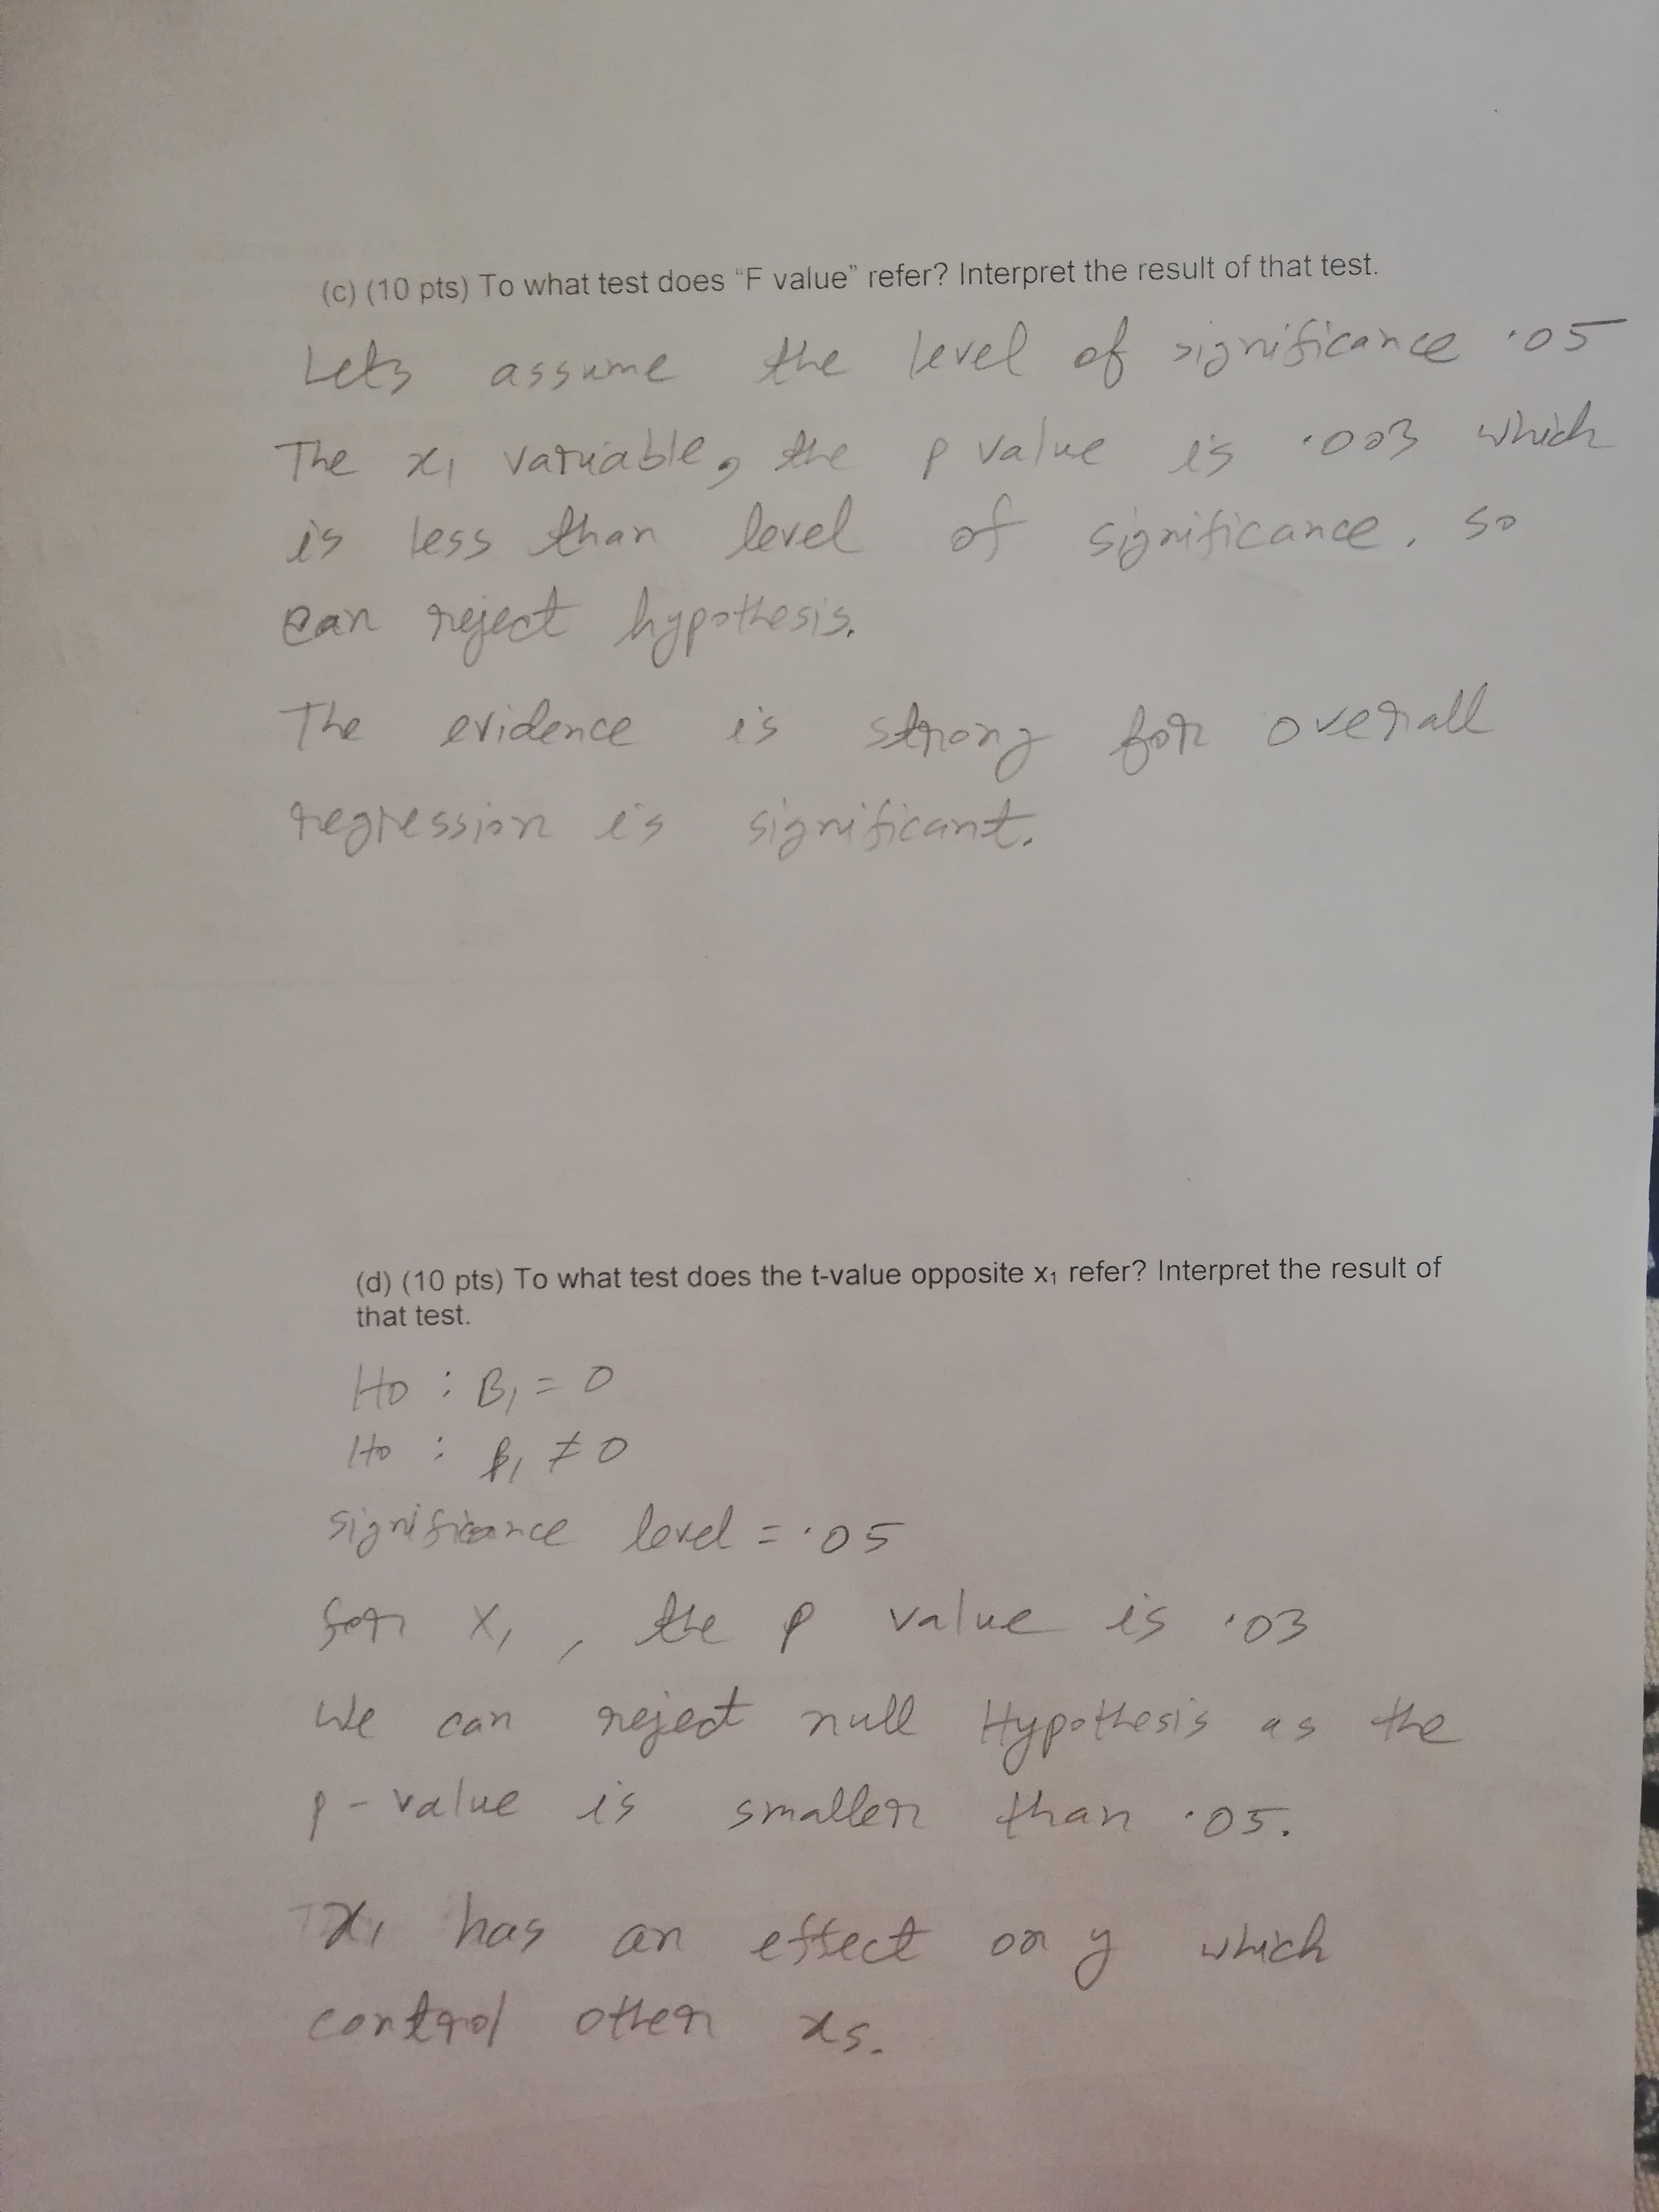 (c) (10 pts) To what test does “F value” refer? Interpret the result of that test.
Lets assume the level of significance .05
The x₁ variable, the p value is .003 which
is less than level of significance. so
can reject hypothesis.
The evidence is strong for overall
regression is significant.
(d) (10 pts) To what test does the t-value opposite x₁ refer? Interpret the result of
that test.
Ho : B₁ = 0
Ho : β₁ ≠ 0
significance level = .05
for X₁, the p value is .03
We can reject null Hypothesis as the
p-value is smaller than .05.
x₁ has an effect on y which
control other xs.